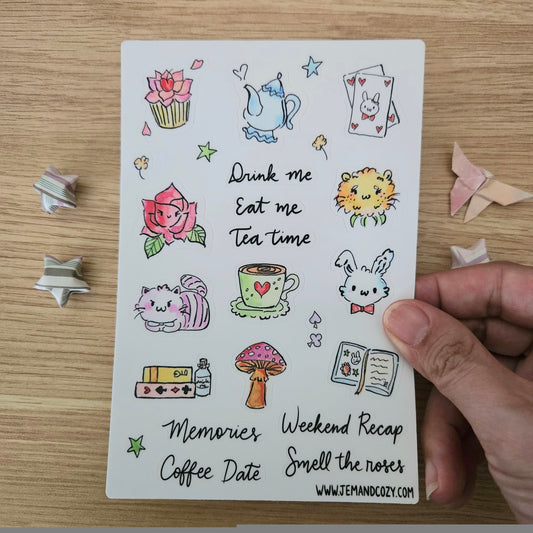 Drink me
Eat me
Tea time
Memories
Weekend Recap
Coffee Date
Smell the roses
WWW.JEMANDCOZY.COM